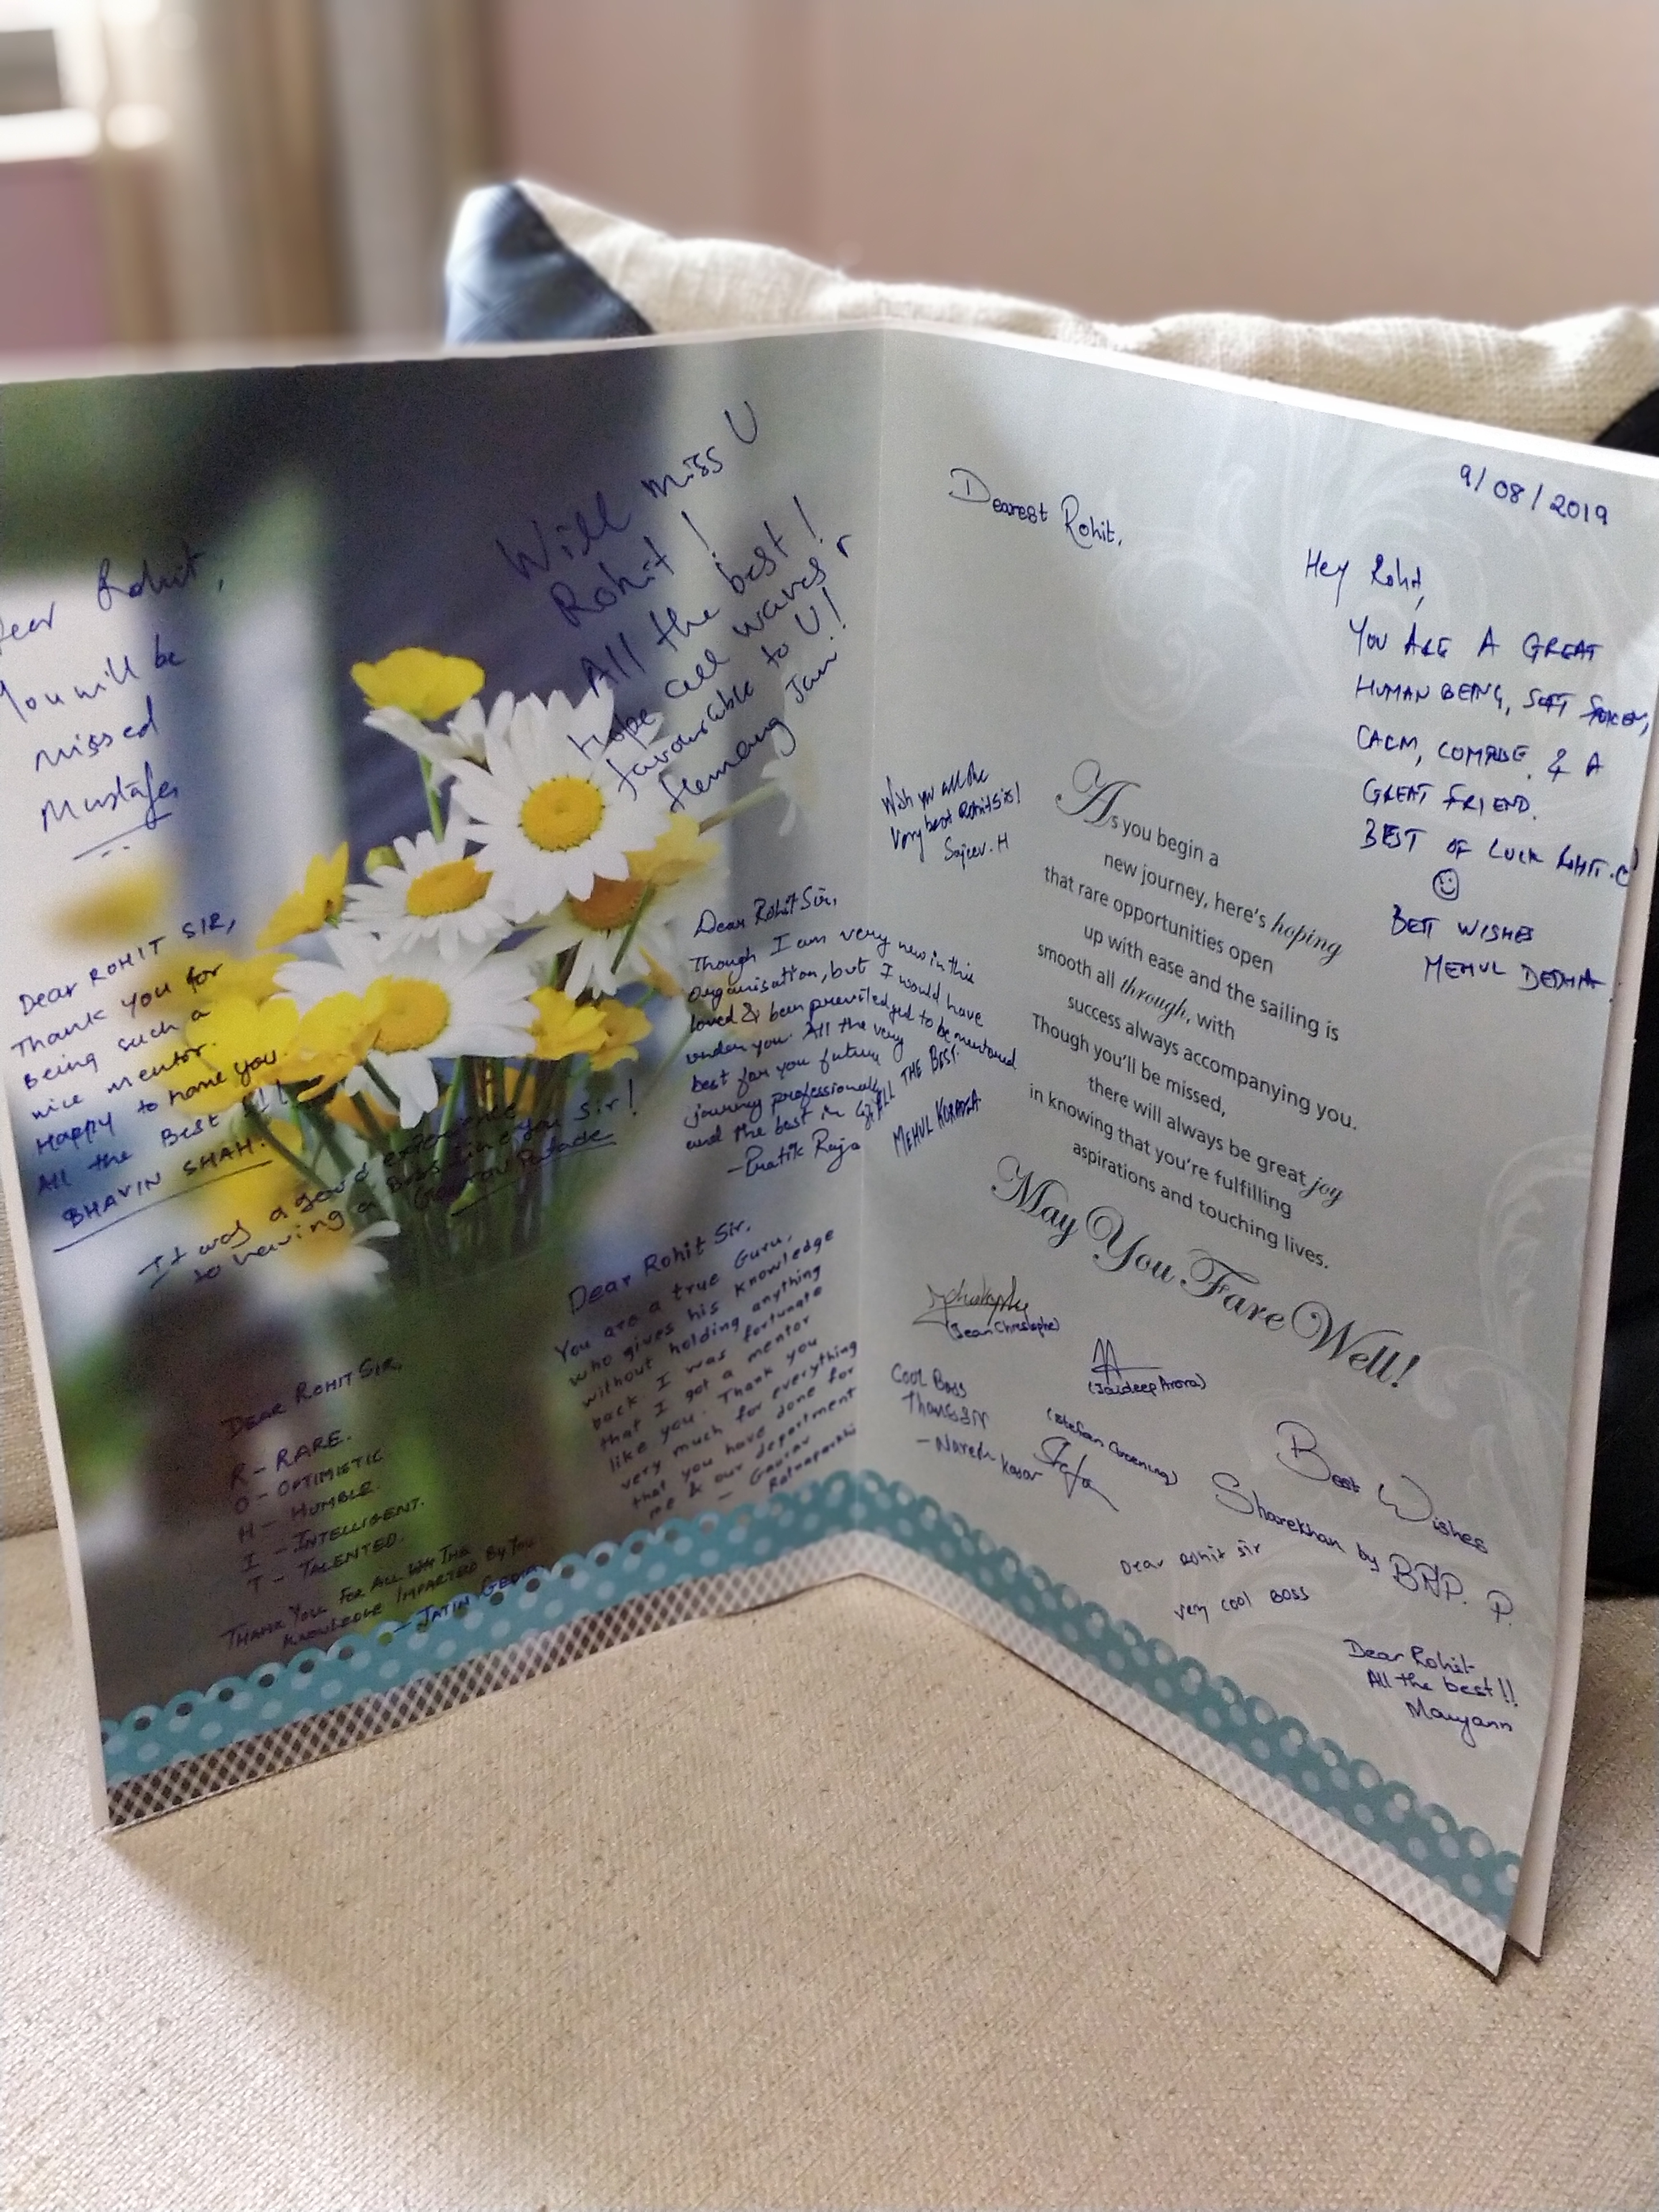 Dear Rohit,
You will be
missed
Mustafa
Will miss U
Rohit !
All the best !
Hope all waves r
favourable to U!
Hemang Jani
Dear ROHIT SIR,
Thank you for
Being such a
nice mentor.
Happy to have you.
All the Best !!!
BHAVIN SHAH.
It was a good experience
to having a Boss like you Sir!
Gaurav
Dear Rohit Sir,
Though I am very new in this
organisation, but I would have
loved & been previledged to be mentored
under you. All the very
best for you future
journey professionally
and the best in life
- Pratik Raja
ALL THE BEST.
MEHUL
Dear Rohit Sir,
You are a true Guru,
who gives his knowledge
without holding anything
back I was fortunate
that I got a mentor
like you. Thank you
very much for everything
that you have done for
me & our department
- Gaurav
Ratnaparkhi
DEAR ROHIT SIR,
R - RARE.
O - OPTIMISTIC
H - HUMBLE.
I - INTELLIGENT.
T - TALENTED.
THANK YOU FOR ALL THE
KNOWLEDGE IMPARTED BY YOU
- JATIN GEDIA
9/08/2019
Dearest Rohit,
Hey Rohit,
YOU ARE A GREAT
HUMAN BEING, SOFT SPOKEN,
CALM, COMPOSE & A
GREAT FRIEND.
BEST OF LUCK ROHIT.
BEST WISHES
MEHUL DEDHIA
Wish you all the
very best Rohit Sir!
Sajeev. H
As you begin a
new journey, here's hoping
that rare opportunities open
up with ease and the sailing is
smooth all through, with
success always accompanying you.
Though you'll be missed,
there will always be great joy
in knowing that you're fulfilling
aspirations and touching lives.
May You Fare Well!
(Jean Christophe)
(Jaideep Arora)
Cool Boss
Thanks
- Naresh
(Stefan Groening)
Best Wishes
Sharekhan by BNP. P.
Dear Rohit sir
very cool BOSS
Dear Rohit
All the best!!
Maryann